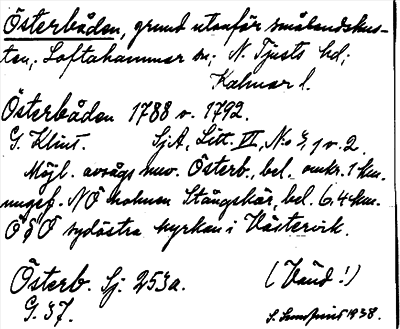 Österbåden, grund utanför smålandskus-
ten; Loftahammar sn; N. Tjusts hd;
Kalmar l.
Österbåden 1788 o. 1792.
G. Klint. SjA, Litt. III, No 3, 1 o. 2.
Möjl. avsågs nuv. Österb., bel. omkr. 1 km.
ungef. NÖ holmen Stångskär, bel. 6,4 km.
Ö § Ö sydöstra kyrkan i Västervik.
Österb. Sj. 253a. (Vänd!)
G. 37. 1938.